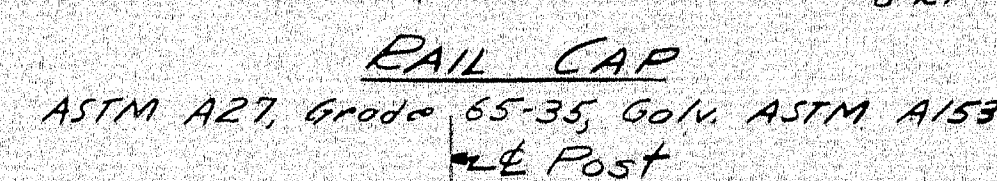 RAIL CAP
ASTM A27, Grade 65-35, Galv. ASTM A153
℄ Post